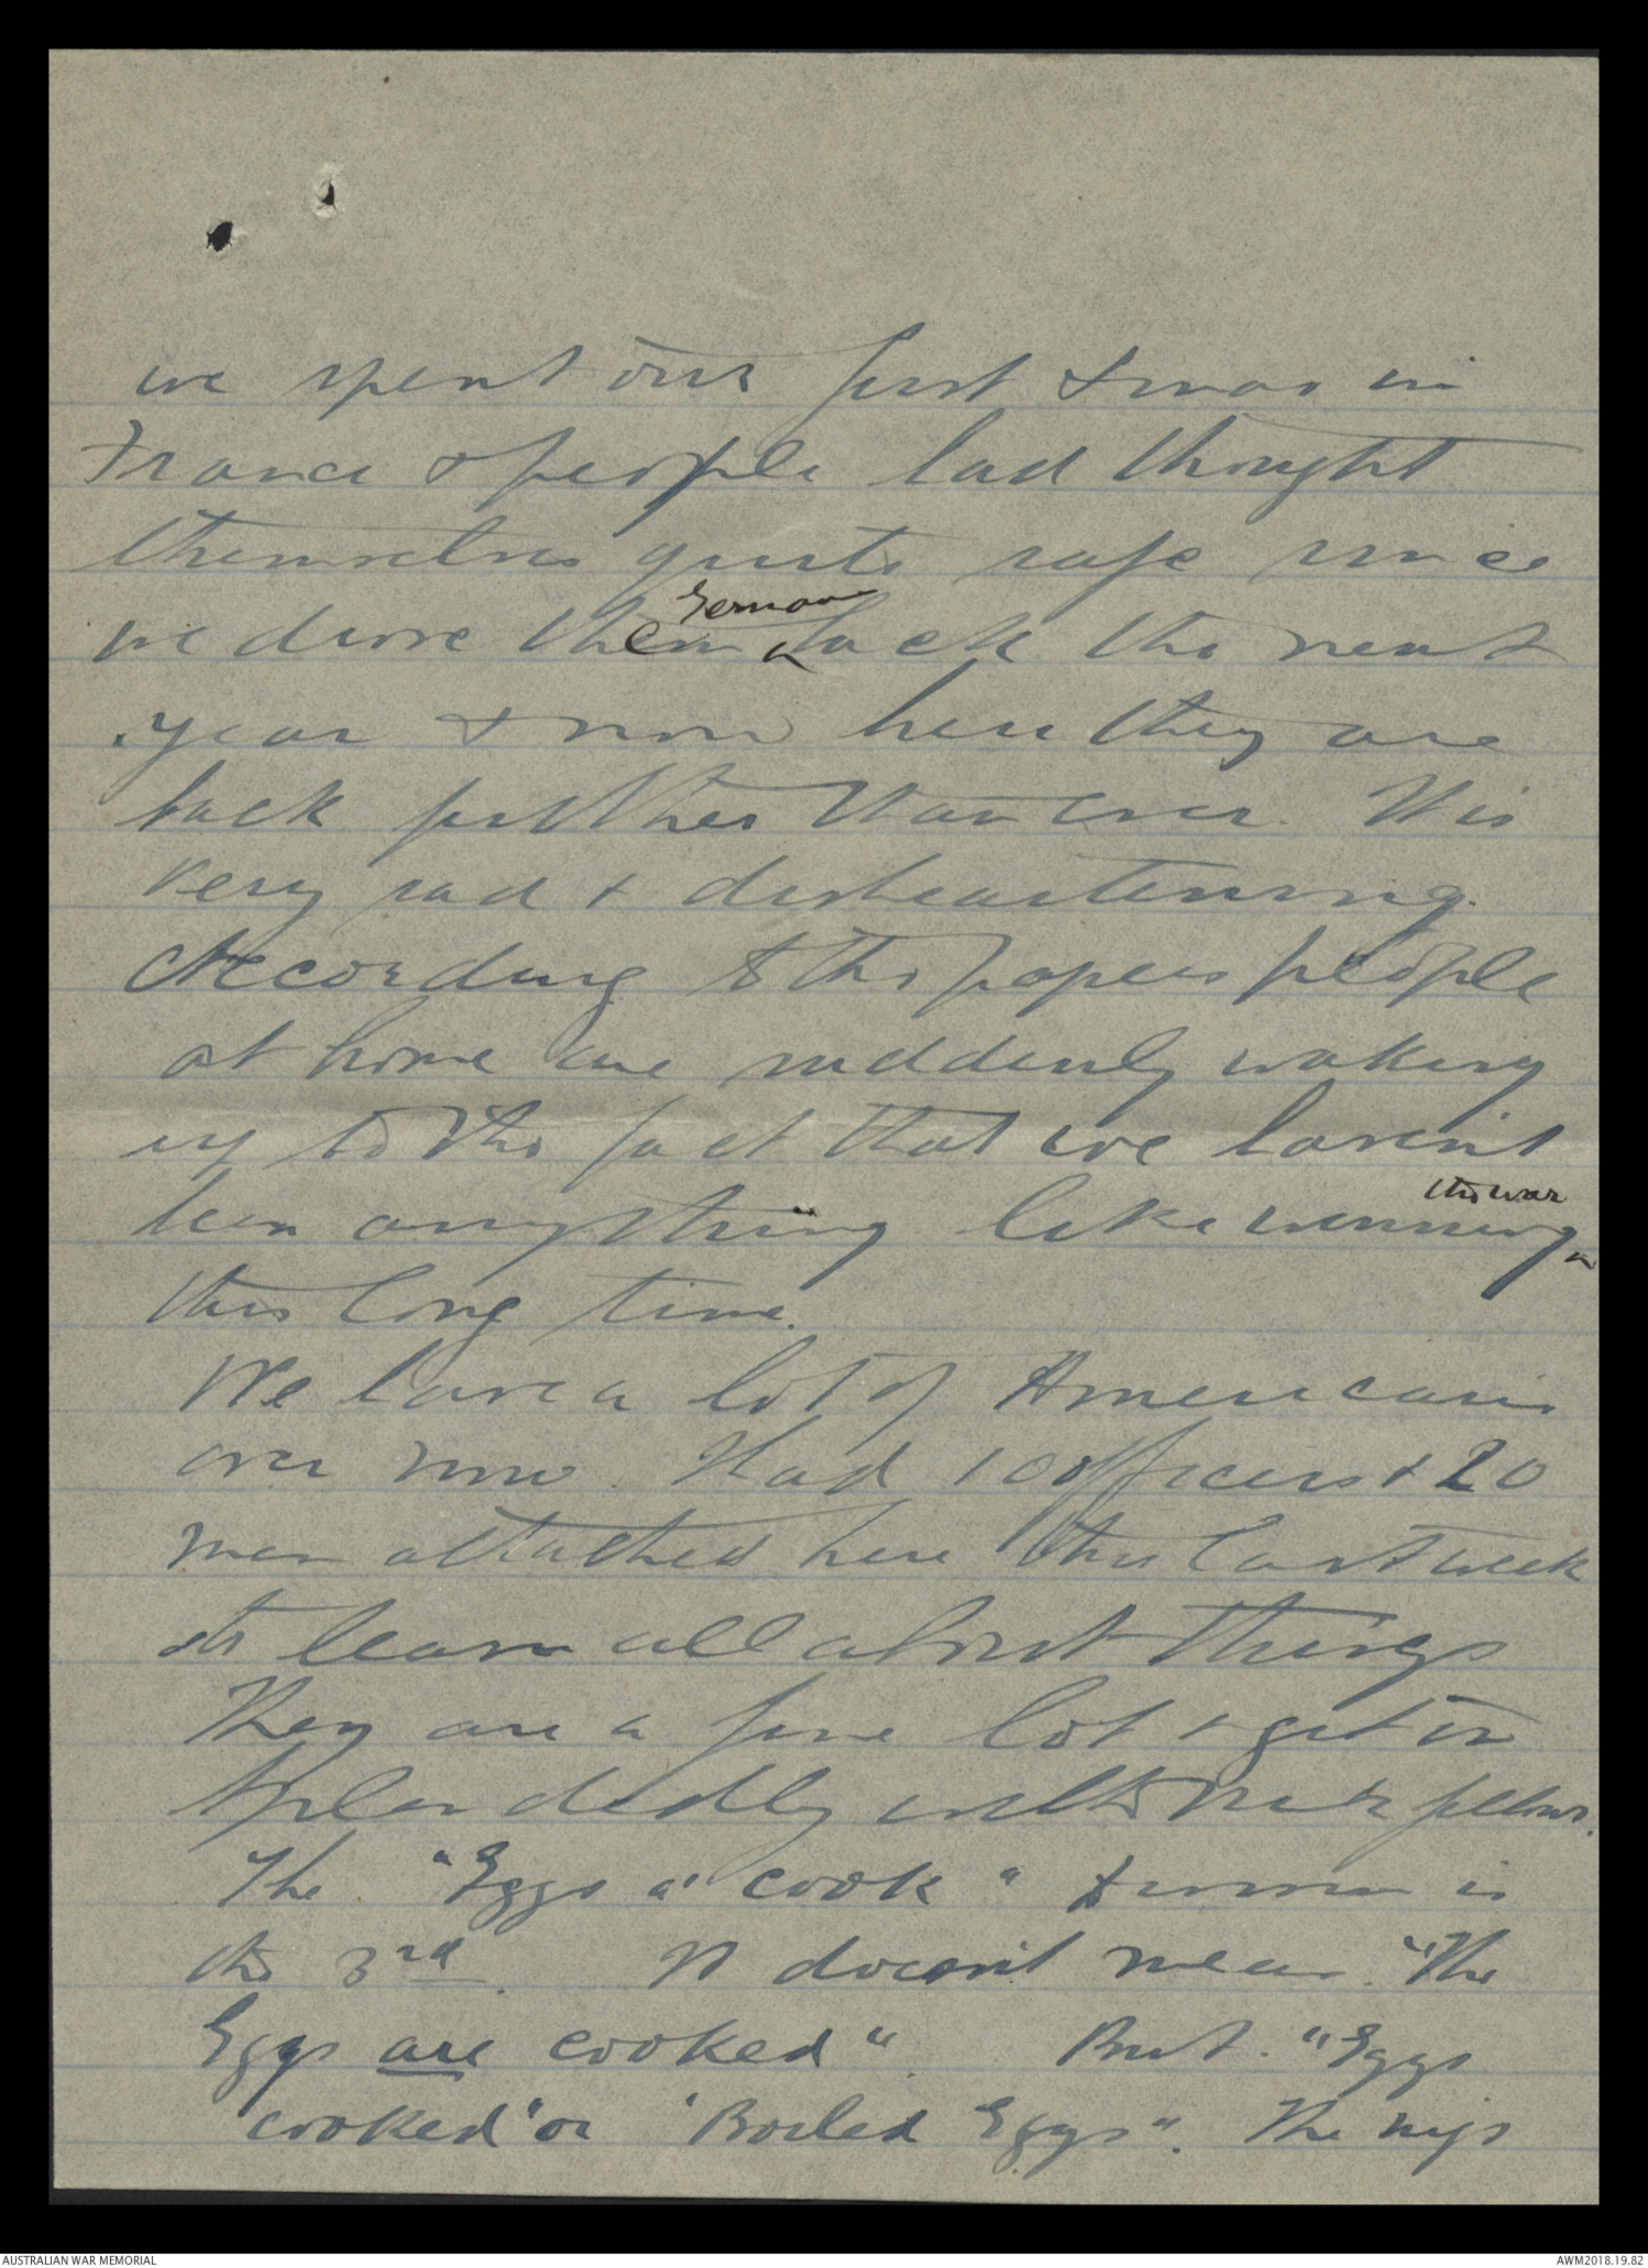 we spent our first Xmas in
France & people had thought
themselves quite safe since
we drove the German back the next
year & now here they are
back further than ever. It is
very sad & disheartening.
According to the papers people
at home are suddenly waking
up to the fact that we haven't
been anything like winning the war
this long time.
We have a lot of Americans
over now. Had 10 officers & 20
men attached here this last week
to learn all about things
They are a fine lot & get on
splendidly with our fellows.
The "Eggs a' cook" division is
the 3rd. It doesn't mean. "The
Eggs are cooked". But. "Eggs
cooked" or 'Boiled Eggs". The
AUSTRALIAN WAR MEMORIAL
AWM2018.19.82